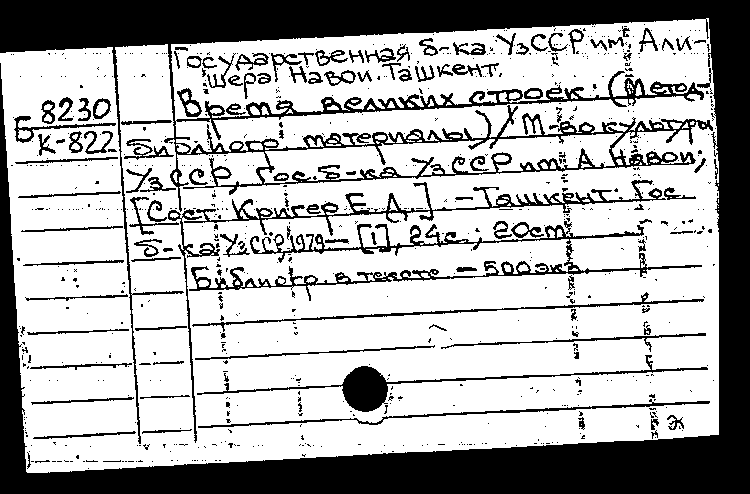 Государственная б-ка УзССР им. Али-
шера Навои. Ташкент.
Б 8230
К-822
Время великих строек: (Метод.-
библиогр. материалы) / М-во культуры
УзССР, Гос. б-ка УзССР им. А. Навои;
[Сост. Кригер Е. Д.] — Ташкент: Гос.
б-ка УзССР, 1979 — [1], 24с.; 20см.
Библиогр. в тексте — 500 экз.